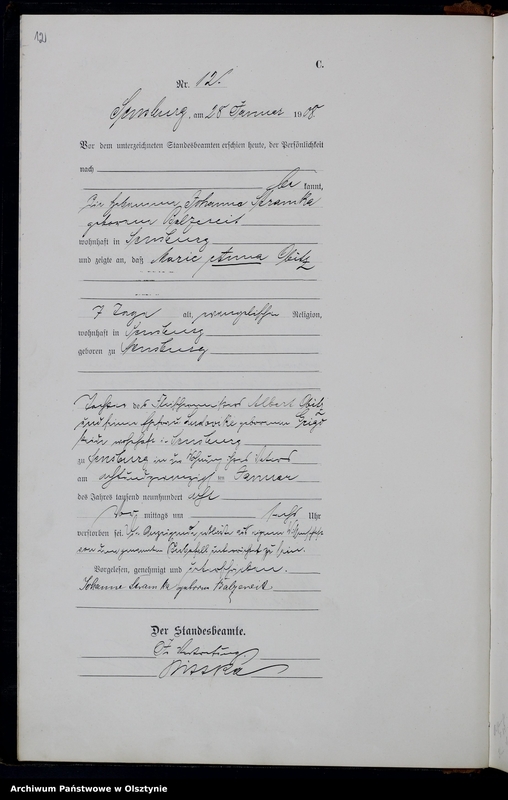 12
C.
Nr. 12.
Sensburg, am 28 Januar 1908.
Vor dem unterzeichneten Standesbeamten erschien heute, der Persönlichkeit
nach
be kannt,
die Hebamme Johanna Skramka
geborene Balzereit
wohnhaft in Sensburg
und zeigte an, daß Marie Anna
7 Tage alt, evangelischer Religion,
wohnhaft in Sensburg
geboren zu Sensburg
Tochter des Albert
und seiner Ehefrau geborenen
wohnhaft in Sensburg
zu Sensburg in der Wohnung ihres Vaters
am achtundzwanzigsten Januar
des Jahres tausend neunhundert acht
Vor mittags um sechs Uhr
verstorben sei. Die Anzeigende erklärte,
von dem genannten Sterbefall unterrichtet zu sein.
Vorgelesen, genehmigt und unterschrieben.
Johanna Skramka geborene Balzereit
Der Standesbeamte.
In Vertretung.
Archiwum Państwowe w Olsztynie